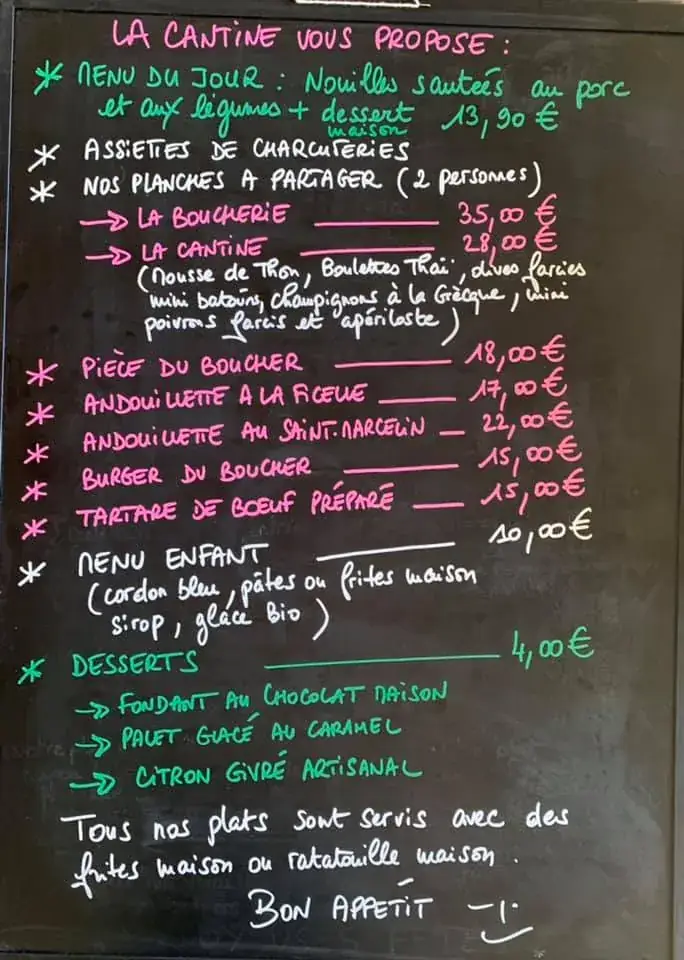 LA CANTINE VOUS PROPOSE :
* MENU DU JOUR : Nouilles sauteés au porc
et aux légumes + dessert 13,90 €
maison
* ASSIETTES DE CHARCUTERIES
* NOS PLANCHES A PARTAGER (2 personnes)
→ LA BOUCHERIE 35,00 €
→ LA CANTINE 28,00 €
(Mousse de Thon, Boulettes Thaï, olives farcies
mini batouns, champignons à la Grècque, mini
poivrons farcis et apéritoste)
* PIÈCE DU BOUCHER 18,00 €
* ANDOUILLETTE A LA FICELLE 17,00 €
* ANDOUILLETTE AU SAINT-MARCELIN 22,00 €
* BURGER DU BOUCHER 15,00 €
* TARTARE DE BŒUF PRÉPARÉ 15,00 €
* MENU ENFANT 10,00 €
(cordon bleu, pâtes ou frites maison
sirop, glace Bio)
* DESSERTS 4,00 €
→ FONDANT AU CHOCOLAT MAISON
→ PALET GLACÉ AU CARAMEL
→ CITRON GIVRÉ ARTISANAL
Tous nos plats sont servis avec des
frites maison ou ratatouille maison.
BON APPÉTIT